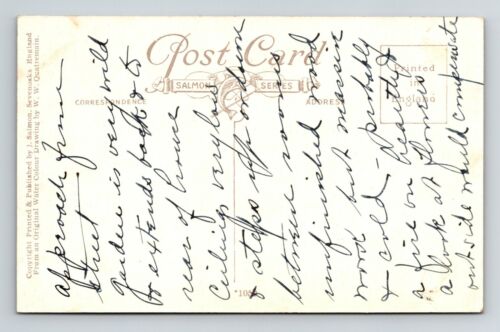 Post Card
SALMON SERIES
CORRESPONDENCE
ADDRESS
Printed
in
England
Copyright Printed & Published by J. Salmon, Sevenoaks, England
From an Original Water Colour Drawing by W. W. Quatremain.
approach from
street
garden is very wild
& extends back to
rear of house
Ceilings very low
& steps up or down
between rooms
unfinished and
wood but
& cold - probably
a fire on hearth &
a look at flowers
outside would compensate